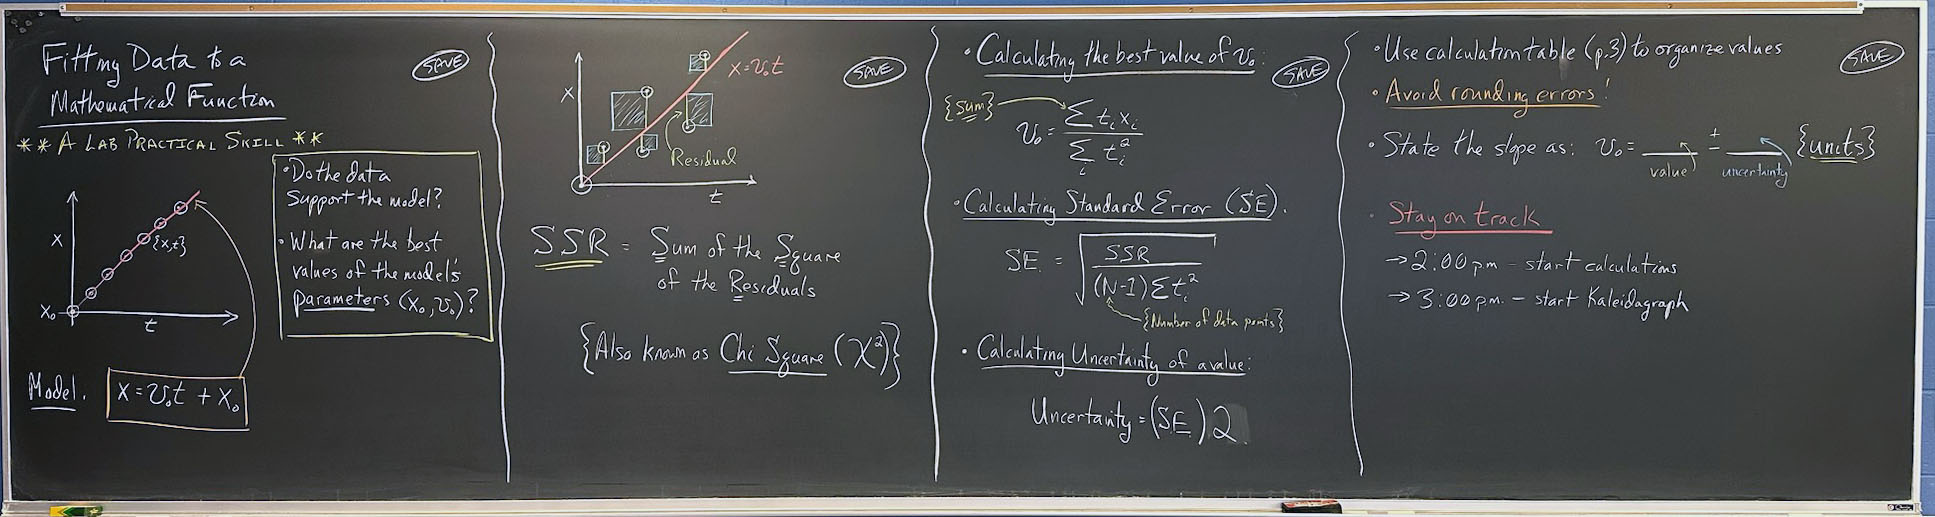 Fitting Data to a
Mathematical Function
SAVE
** A LAB PRACTICAL SKILL **
• Do the data
support the model?
• What are the best
values of the model's
parameters (x₀, v₀)?
x
{x,t}
x₀
t
Model.
x = v₀t + x₀
SAVE
x
x = v₀t
Residual
t
SSR = Sum of the Square
of the Residuals
{Also known as Chi Square (χ²)}
• Calculating the best value of v₀:
SAVE
{Sum}
v₀ = Σ tᵢxᵢ / Σᵢ tᵢ²
• Calculating Standard Error (SE).
SE = √(SSR / (N-1)Σtᵢ²)
{Number of data points}
• Calculating Uncertainty of a value:
Uncertainty = (SE)2
• Use calculation table (p.3) to organize values
SAVE
• Avoid rounding errors!
• State the slope as: v₀ = ____ ± ____ {units}
value
uncertainty
• Stay on track
→ 2:00 pm – start calculations
→ 3:00 pm. – start Kaleidagraph